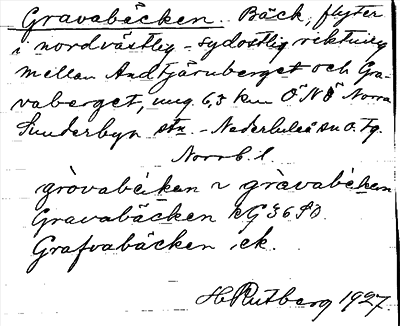 Gravabäcken. Bäck, flyter
i nordvästlig - sydostlig riktning
mellan Andtjärnberget och Gra-
vaberget, ung. 6,3 km Ö N Ö Norra
Sunderbyn stn. - Nederluleå sn o. tg.
Norrb. l.
gròvabèiken ~ gràvabèken
Gravabäcken kG 36 SO.
Grafvabäcken ek.
H Rutberg 1927.